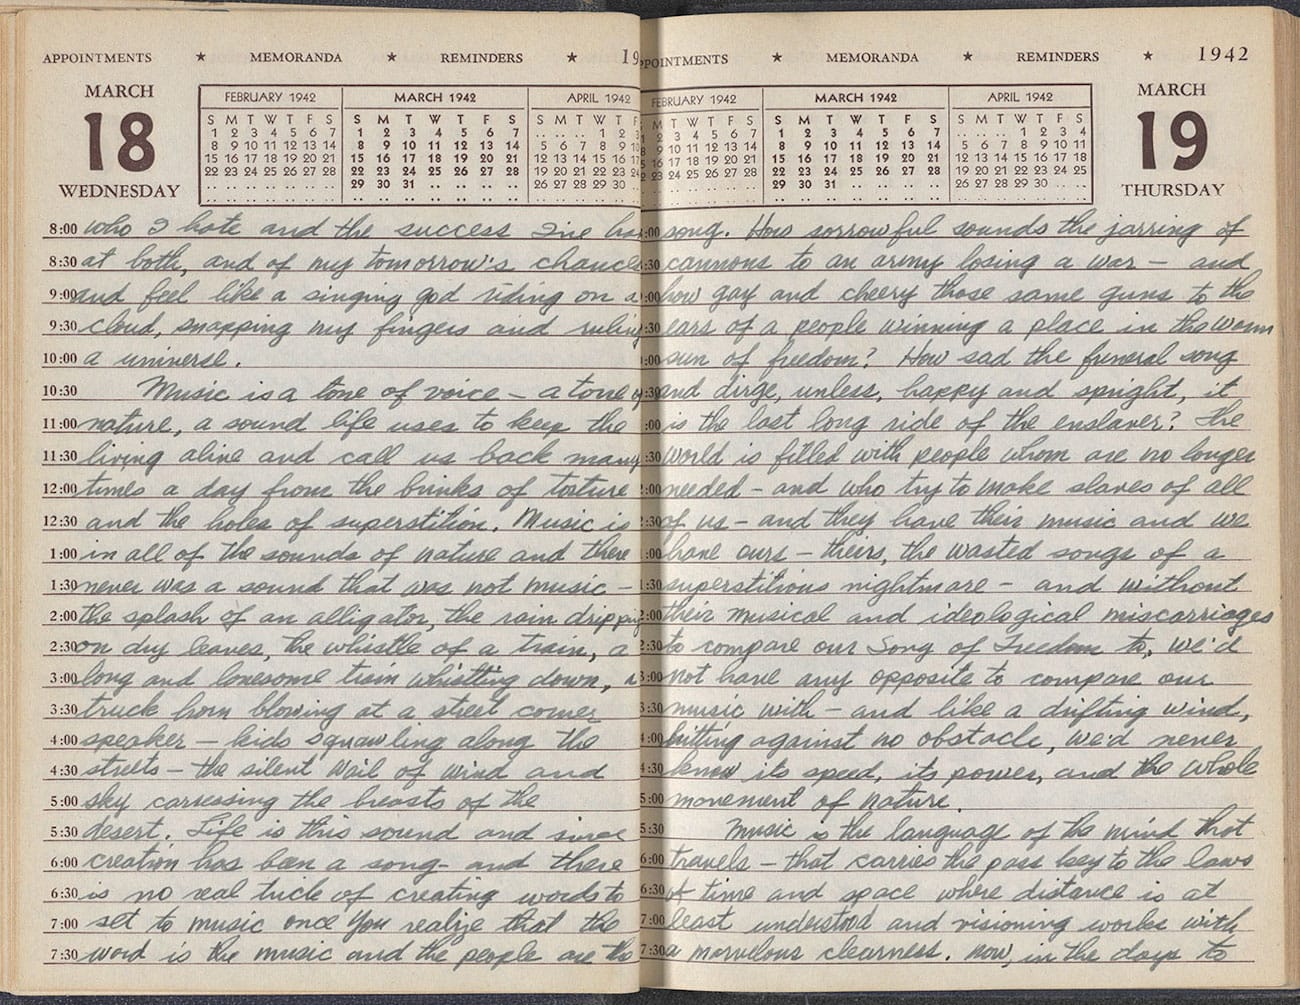 APPOINTMENTS ★ MEMORANDA ★ REMINDERS ★ 19
MARCH
18
WEDNESDAY
FEBRUARY 1942
S M T W T F S
1 2 3 4 5 6 7
8 9 10 11 12 13 14
15 16 17 18 19 20 21
22 23 24 25 26 27 28
MARCH 1942
S M T W T F S
1 2 3 4 5 6 7
8 9 10 11 12 13 14
15 16 17 18 19 20 21
22 23 24 25 26 27 28
29 30 31
APRIL 1942
S M T W T F
1 2 3
5 6 7 8 9 10
12 13 14 15 16 17
19 20 21 22 23 24
26 27 28 29 30
8:00 who I hate and the success I've had
8:30 at both, and of my tomorrow's chances
9:00 and feel like a singing god riding on a
9:30 cloud, snapping my fingers and ruling
10:00 a universe.
10:30 Music is a tone of voice – a tone of
11:00 nature, a sound life uses to keep the
11:30 living alive and call us back many
12:00 times a day from the brinks of torture
12:30 and the holes of superstition. Music is
1:00 in all of the sounds of nature and there
1:30 never was a sound that was not music –
2:00 the splash of an alligator, the rain dripping
2:30 on dry leaves, the whistle of a train, a
3:00 long and lonesome train whistling down, a
3:30 truck horn blowing at a street corner
4:00 speaker – kids squawling along the
4:30 streets – the silent wail of wind and
5:00 sky carressing the breasts of the
5:30 desert. Life is this sound and since
6:00 creation has been a song – and there
6:30 is no real trick of creating words to
7:00 set to music once you realize that the
7:30 word is the music and the people are the
PPOINTMENTS ★ MEMORANDA ★ REMINDERS ★ 1942
MARCH
19
THURSDAY
FEBRUARY 1942
M T W T F S
2 3 4 5 6 7
9 10 11 12 13 14
16 17 18 19 20 21
23 24 25 26 27 28
MARCH 1942
S M T W T F S
1 2 3 4 5 6 7
8 9 10 11 12 13 14
15 16 17 18 19 20 21
22 23 24 25 26 27 28
29 30 31
APRIL 1942
S M T W T F S
1 2 3 4
5 6 7 8 9 10 11
12 13 14 15 16 17 18
19 20 21 22 23 24 25
26 27 28 29 30
:00 song. How sorrowful sounds the jarring of
:30 cannons to an army losing a war – and
:00 how gay and cheery those same guns to the
:30 ears of a people winning a place in the warm
:00 sun of freedom? How sad the funeral song
:30 and dirge, unless, happy and spright, it
:00 is the last long ride of the enslaver? The
:30 world is filled with people whom are no longer
2:00 needed – and who try to make slaves of all
2:30 of us – and they have their music and we
1:00 have ours – theirs, the wasted songs of a
1:30 superstitious nightmare – and without
2:00 their musical and ideological miscarriages
2:30 to compare our Song of Freedom to, we'd
3:00 not have any opposite to compare our
3:30 music with – and like a drifting wind,
4:00 hitting against no obstacle, we'd never
4:30 know its speed, its power, and the whole
5:00 movement of nature.
5:30 Music is the language of the mind that
6:00 travels – that carries the pass key to the laws
6:30 of time and space where distance is at
7:00 least understood and visioning works with
7:30 a marvelous clearness. Now, in the days to